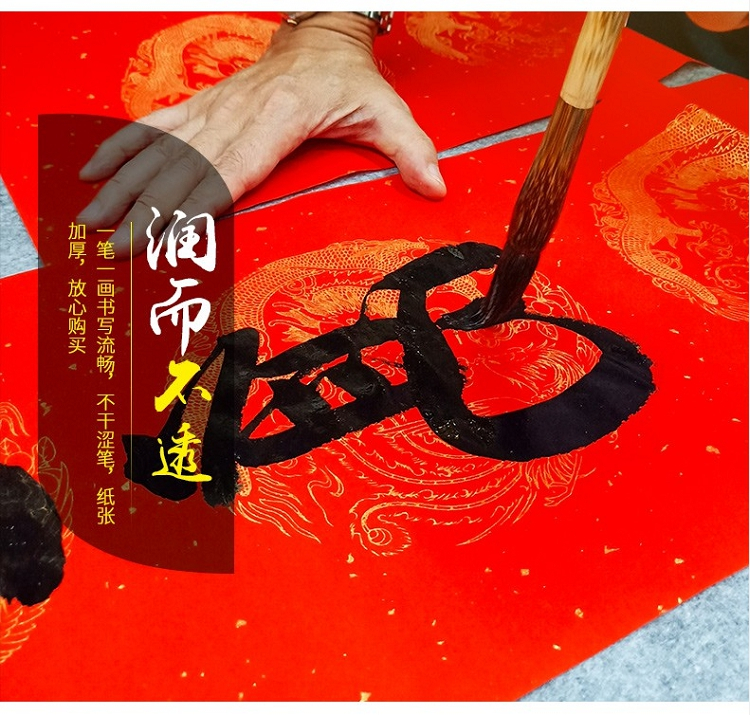 润而不透
一笔一画书写流畅，不干涩笔，纸张
加厚，放心购买